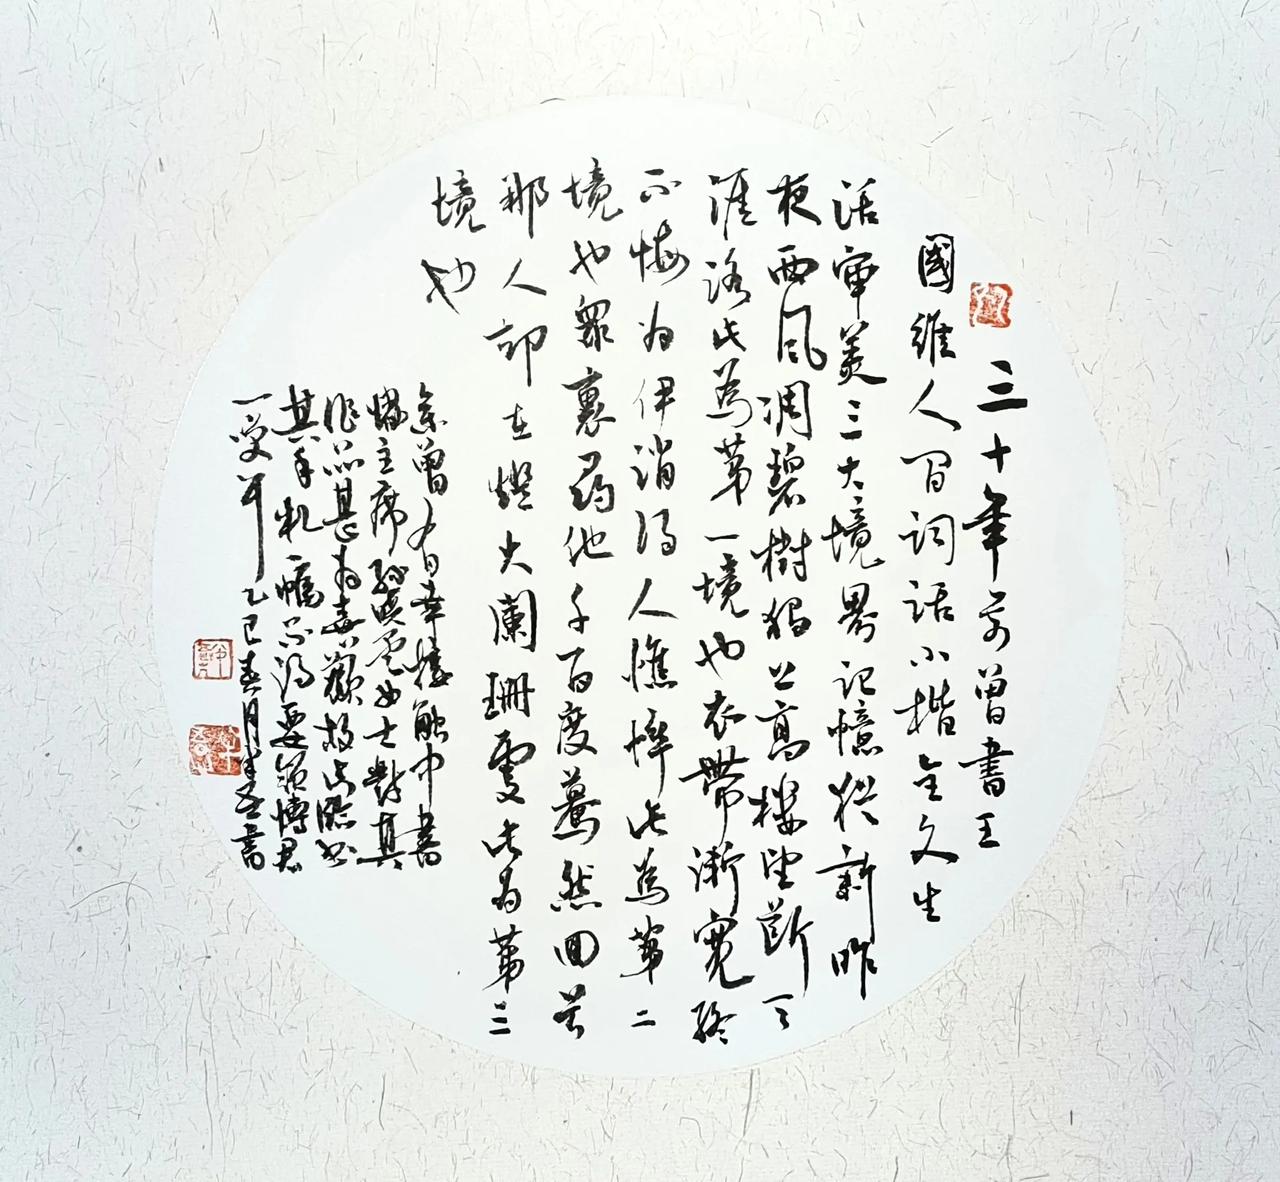 三十年前曾書王
國維人间词话小楷全文生
活审美三大境界记憶猶新昨
夜西風凋碧樹獨上高樓望断天
涯路此為苐一境也衣帶漸寬終
不悔为伊消得人憔悴此為苐二
境也眾裏尋他千百度驀然回首
那人却在燈火闌珊處此为苐三
境也
余曾有幸接触中書
協主席孙晓雲女士對其
作品甚为喜歡故时臨书
其手札一幅不得要領博君
一受耳乙巳春月書